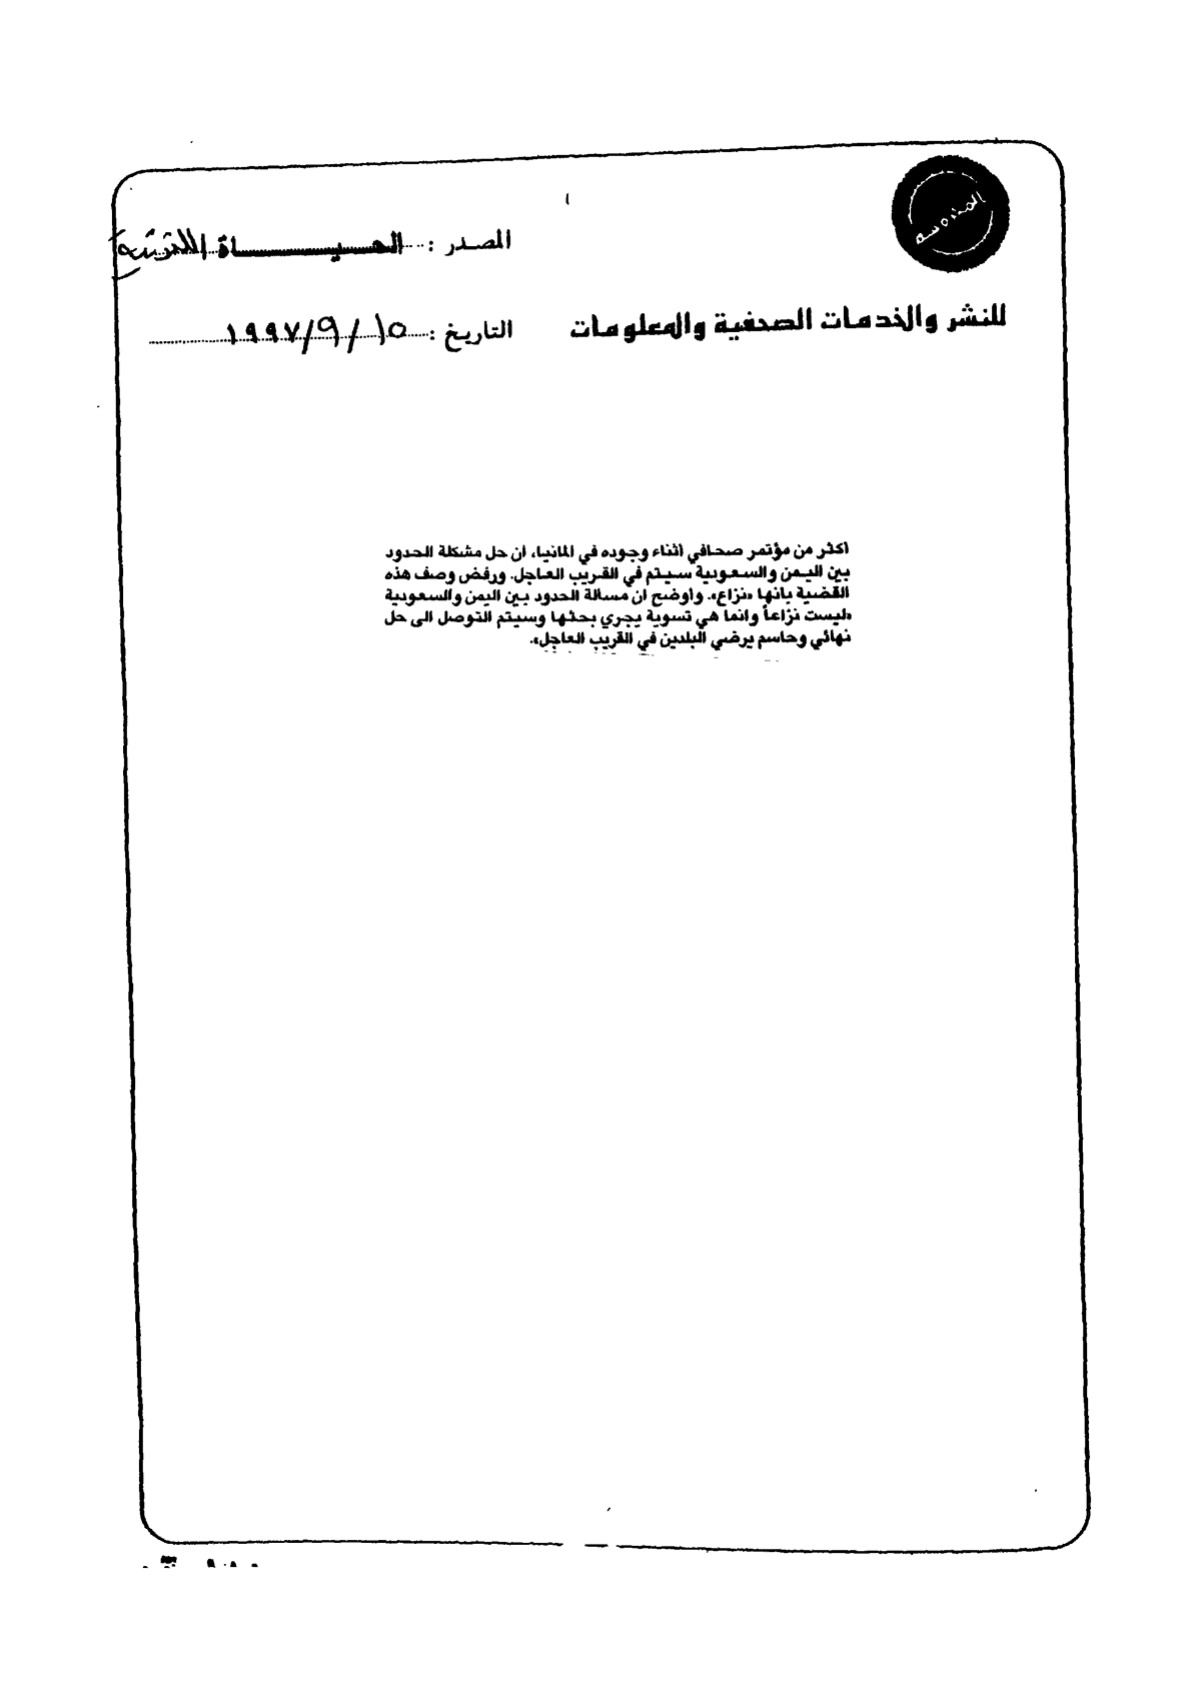 المصدر : الحيـــــاة اللندنية
للنشر والخدمات الصحفية والمعلومات
التاريخ : ١٥ / ٩ / ١٩٩٧
اكثر من مؤتمر صحافي اثناء وجوده في المانيا، ان حل مشكلة الحدود
بين اليمن والسعودية سيتم في القريب العاجل. ورفض وصف هذه
القضية بانها «نزاع». واوضح ان مسالة الحدود بين اليمن والسعودية
«ليست نزاعاً وانما هي تسوية يجري بحثها وسيتم التوصل الى حل
نهائي وحاسم يرضي البلدين في القريب العاجل».